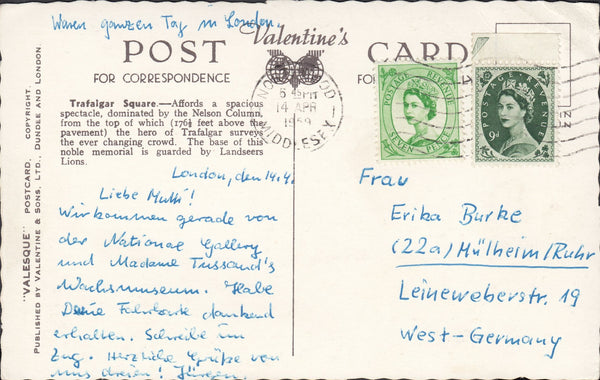 Waren ganzen Tag in London.
POST Valentine's CARD
FOR CORRESPONDENCE
Trafalgar Square.—Affords a spacious
spectacle, dominated by the Nelson Column,
from the top of which (176½ feet above the
pavement) the hero of Trafalgar surveys
the ever changing crowd. The base of this
noble memorial is guarded by Landseers
Lions.
London, den 14.4.
Liebe Mutti!
Wir kommen gerade von
der National Gallery
und Madame Tussaud's
Wachsmuseum. Habe
Deine Fahrkarte dankend
erhalten. Schreibe im
Zug. Herzliche Grüße von
uns dreien! Jürgen.
"VALESQUE" POSTCARD. COPYRIGHT.
PUBLISHED BY VALENTINE & SONS, LTD., DUNDEE AND LONDON.
14 APR
1959
MIDDLESEX
POSTAGE REVENUE
SEVEN PENCE
POSTAGE REVENUE
9d
Frau
Erika Burke
(22a) Mülheim/Ruhr
Leineweberstr. 19
West-Germany